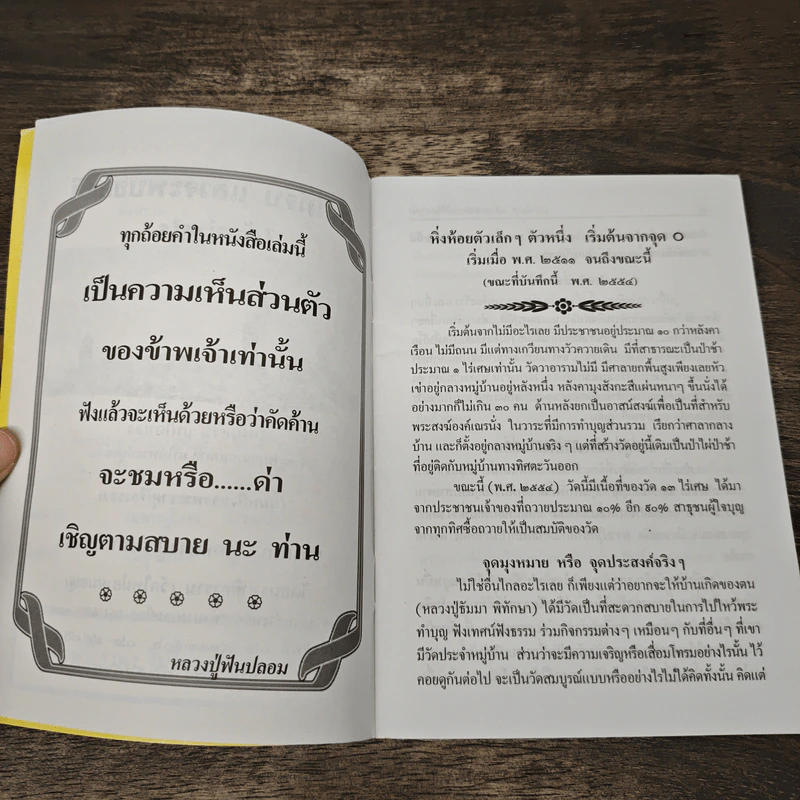 ทุกถ้อยคำในหนังสือเล่มนี้
เป็นความเห็นส่วนตัว
ของข้าพเจ้าเท่านั้น
ฟังแล้วจะเห็นด้วยหรือว่าคัดค้าน
จะชมหรือ......ด่า
เชิญตามสบาย นะ ท่าน
หลวงปู่ฟันปลอม
หิ่งห้อยตัวเล็กๆ ตัวหนึ่ง เริ่มต้นจากจุด ๐
เริ่มเมื่อ พ.ศ. ๒๕๑๑ จนถึงขณะนี้
(ขณะที่บันทึกนี้ พ.ศ. ๒๕๕๔)
เริ่มต้นจากไม่มีอะไรเลย มีประชาชนอยู่ประมาณ ๑๐ กว่าหลังคา
เรือน ไม่มีถนน มีแต่ทางเกวียนทางวัวควายเดิน มีที่สาธารณะเป็นป่าช้า
ประมาณ ๑ ไร่เศษเท่านั้น วัดวาอารามไม่มี มีศาลายกพื้นสูงเพียงเลยหัว
เข่าอยู่กลางหมู่บ้านอยู่หลังหนึ่ง หลังคามุงสังกะสีแผ่นหนาๆ ขึ้นนั่งได้
อย่างมากก็ไม่เกิน ๓๐ คน ด้านหลังยกเป็นอาสน์สงฆ์เพื่อเป็นที่สำหรับ
พระสงฆ์องค์เณรนั่ง ในวาระที่มีการทำบุญส่วนรวม เรียกว่าศาลากลาง
บ้าน และก็ตั้งอยู่กลางหมู่บ้านจริงๆ แต่ที่สร้างวัดอยู่นี้เดิมเป็นป่าไผ่ป่าช้า
ที่อยู่ติดกับหมู่บ้านทางทิศตะวันออก
ขณะนี้ (พ.ศ. ๒๕๕๔) วัดนี้มีเนื้อที่ของวัด ๑๓ ไร่เศษ ได้มา
จากประชาชนเจ้าของที่ถวายประมาณ ๑๐% อีก ๙๐% สาธุชนผู้ใจบุญ
จากทุกทิศซื้อถวายให้เป็นสมบัติของวัด
จุดมุงหมาย หรือ จุดประสงค์จริงๆ
ไม่ใช่อื่นไกลอะไรเลย ก็เพียงแต่ว่าอยากจะให้บ้านเกิดของตน
(หลวงปู่ธัมมา พิทักษา) ได้มีวัดเป็นที่สะดวกสบายในการไปไหว้พระ
ทำบุญ ฟังเทศน์ฟังธรรม ร่วมกิจกรรมต่างๆ เหมือนๆ กับที่อื่นๆ ที่เขา
มีวัดประจำหมู่บ้าน ส่วนว่าจะมีความเจริญหรือเสื่อมโทรมอย่างไรนั้น ไว้
คอยดูกันต่อไป จะเป็นวัดสมบูรณ์แบบหรืออย่างไรไม่ได้คิดทั้งนั้น คิดแต่